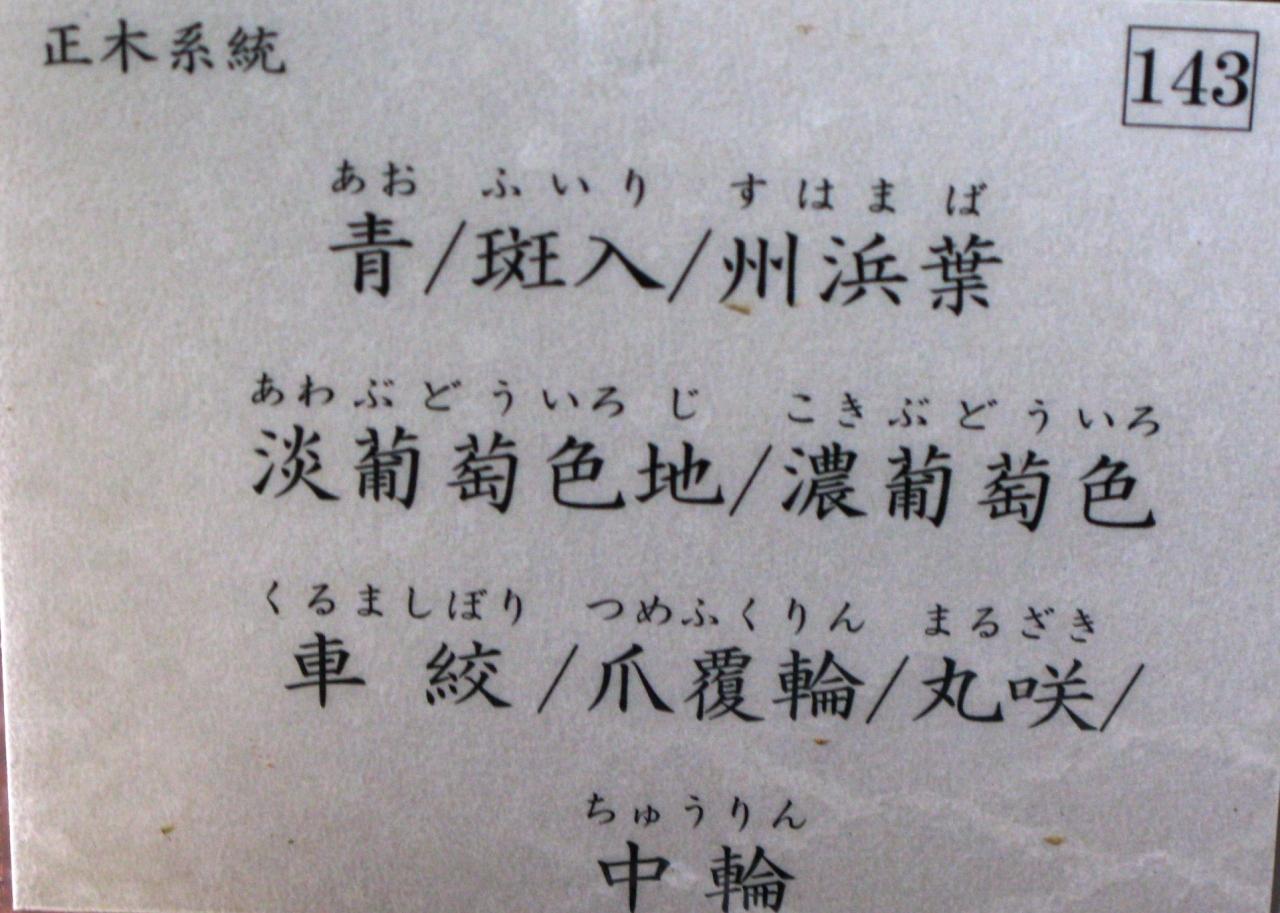 正木系統
143
あお ふいり すはまば
青/斑入/州浜葉
あわぶどういろじ こきぶどういろ
淡葡萄色地/濃葡萄色
くるましぼり つめふくりん まるざき
車絞/爪覆輪/丸咲/
ちゅうりん
中輪